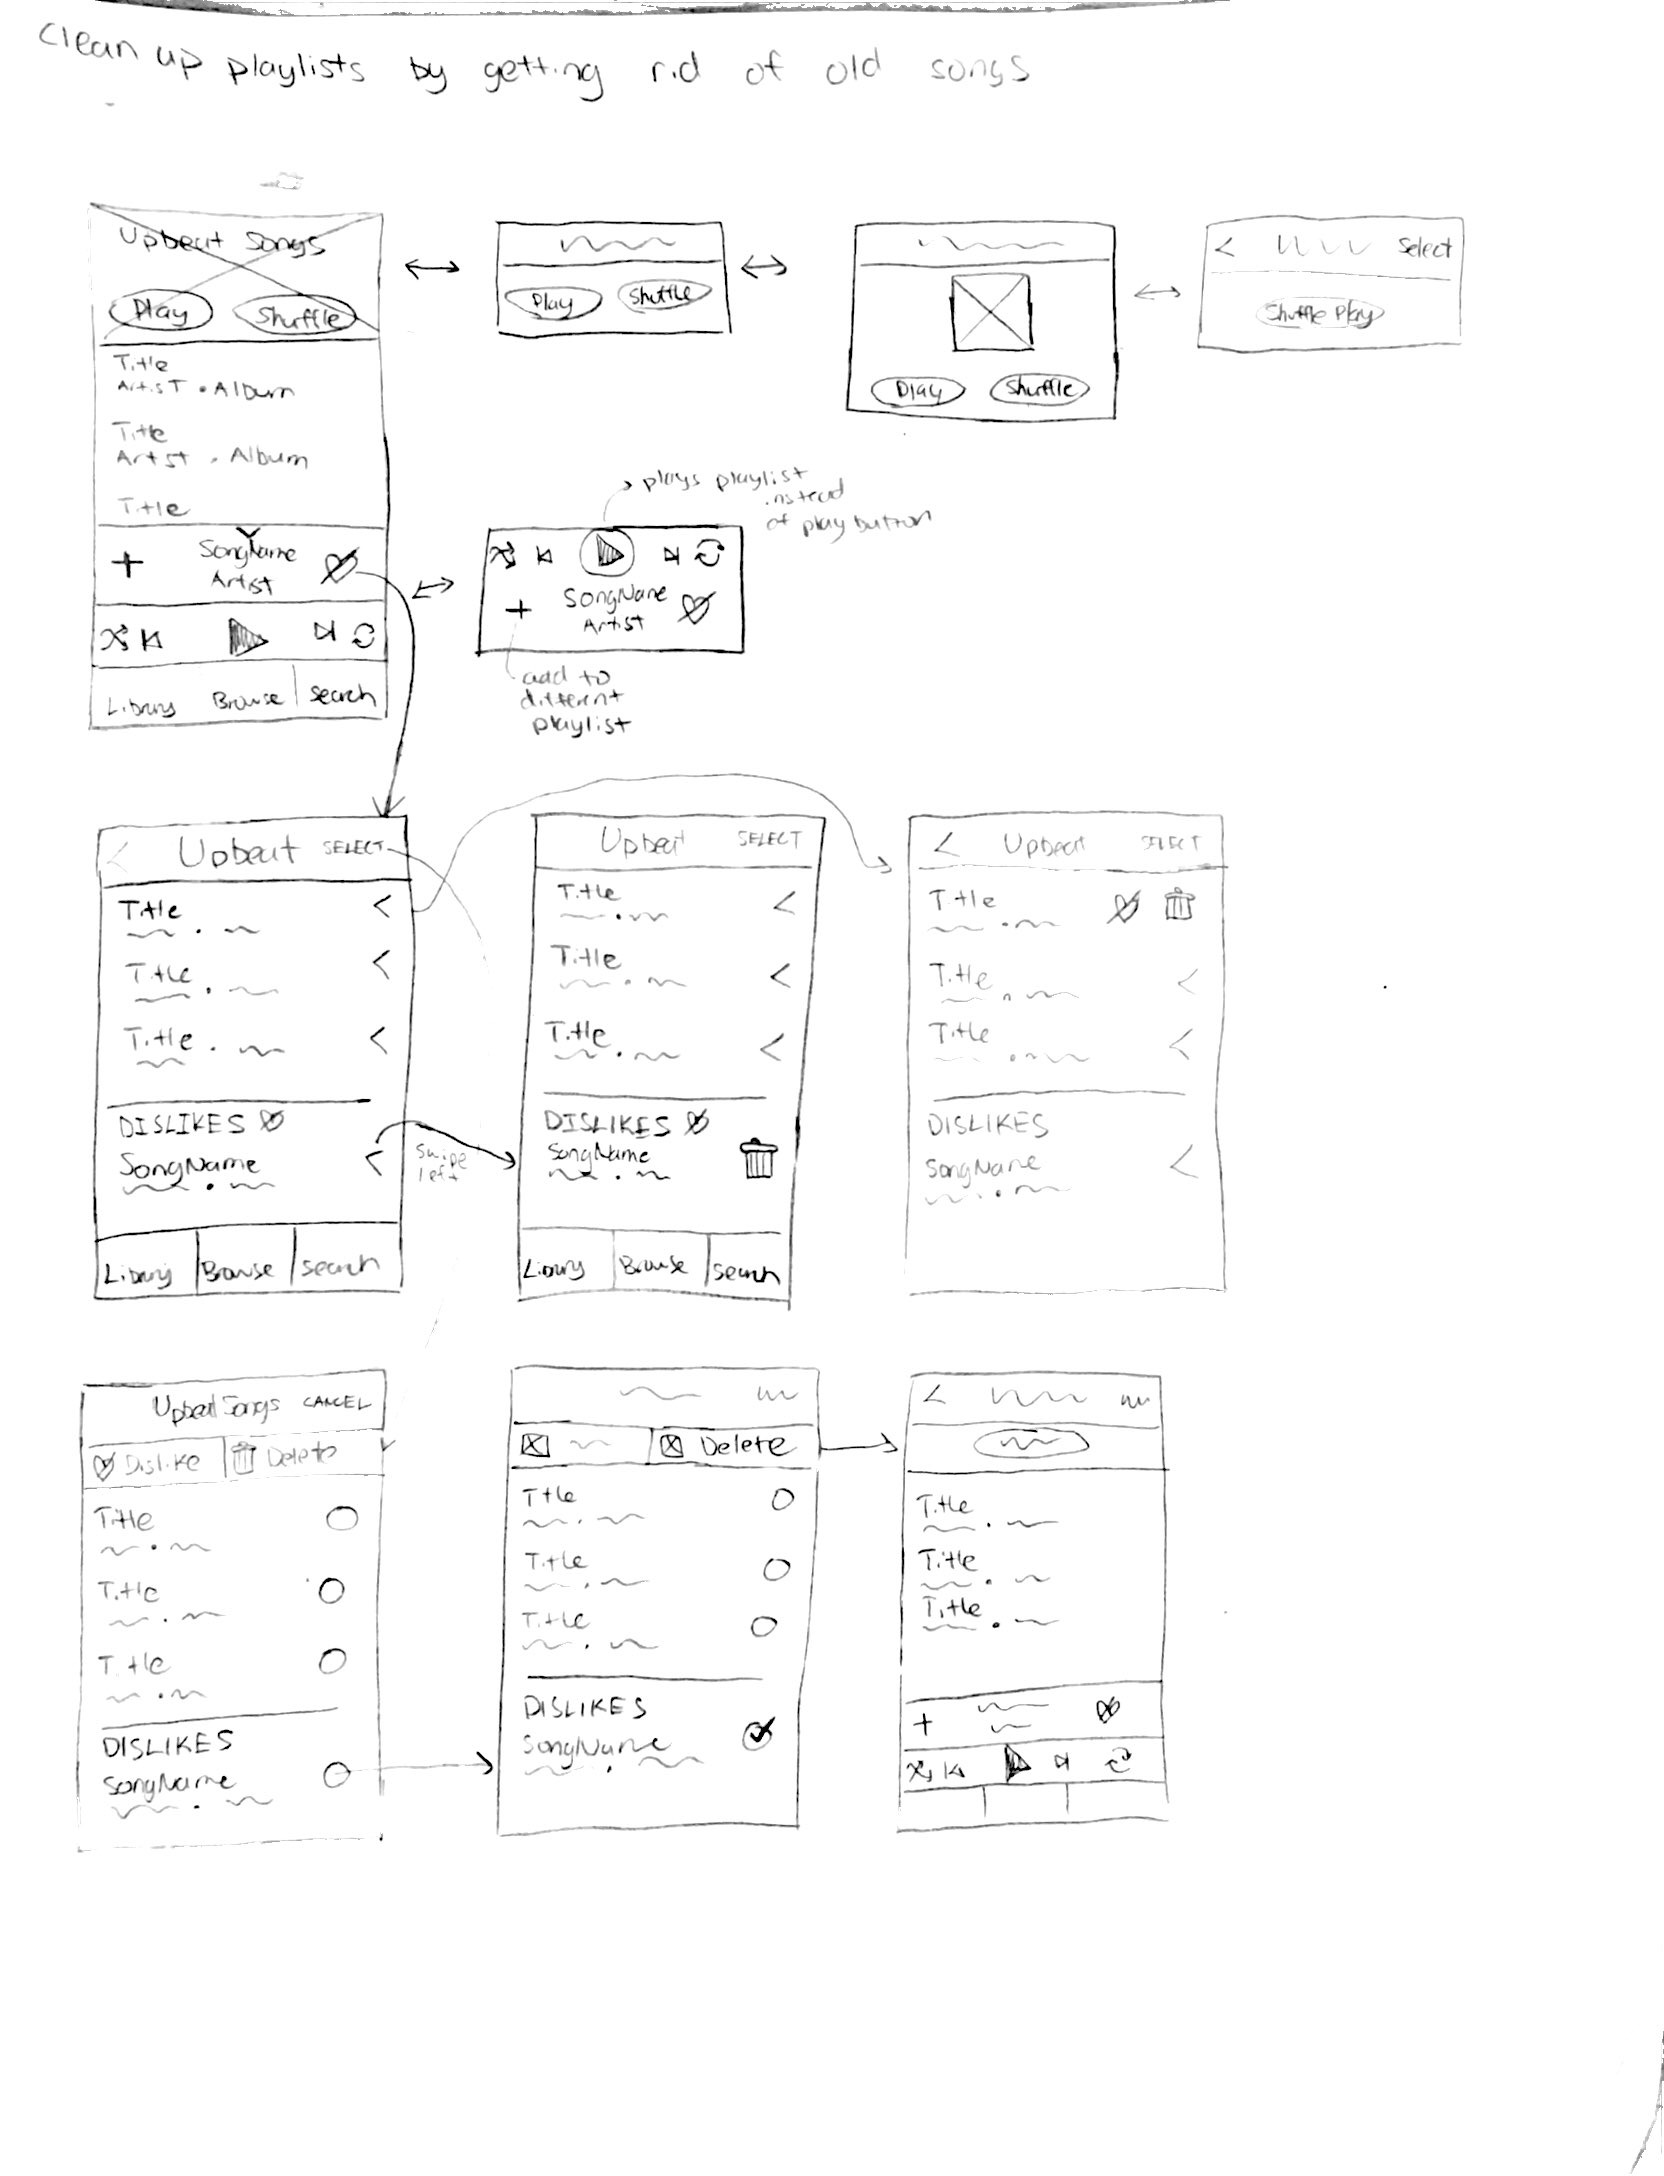 clean up playlists by getting rid of old songs
Upbeat Songs
Play
Shuffle
Title
Artist • Album
Title
Artist • Album
Title
+
SongName
Artist
Library
Browse
Search
Play
Shuffle
Play
Shuffle
<
Select
Shuffle Play
plays playlist
instead
of play button
+
SongName
Artist
add to
different
playlist
<
Upbeat
SELECT
Title
<
Title
<
Title
<
DISLIKES
SongName
<
swipe
left
Library
Browse
Search
Upbeat
SELECT
Title
<
Title
<
Title
<
DISLIKES
SongName
Library
Browse
Search
<
Upbeat
SELECT
Title
Title
<
Title
<
DISLIKES
SongName
<
Upbeat Songs
CANCEL
Dislike
Delete
Title
Title
Title
DISLIKES
SongName
Delete
Title
Title
Title
DISLIKES
SongName
<
Title
Title
Title
+